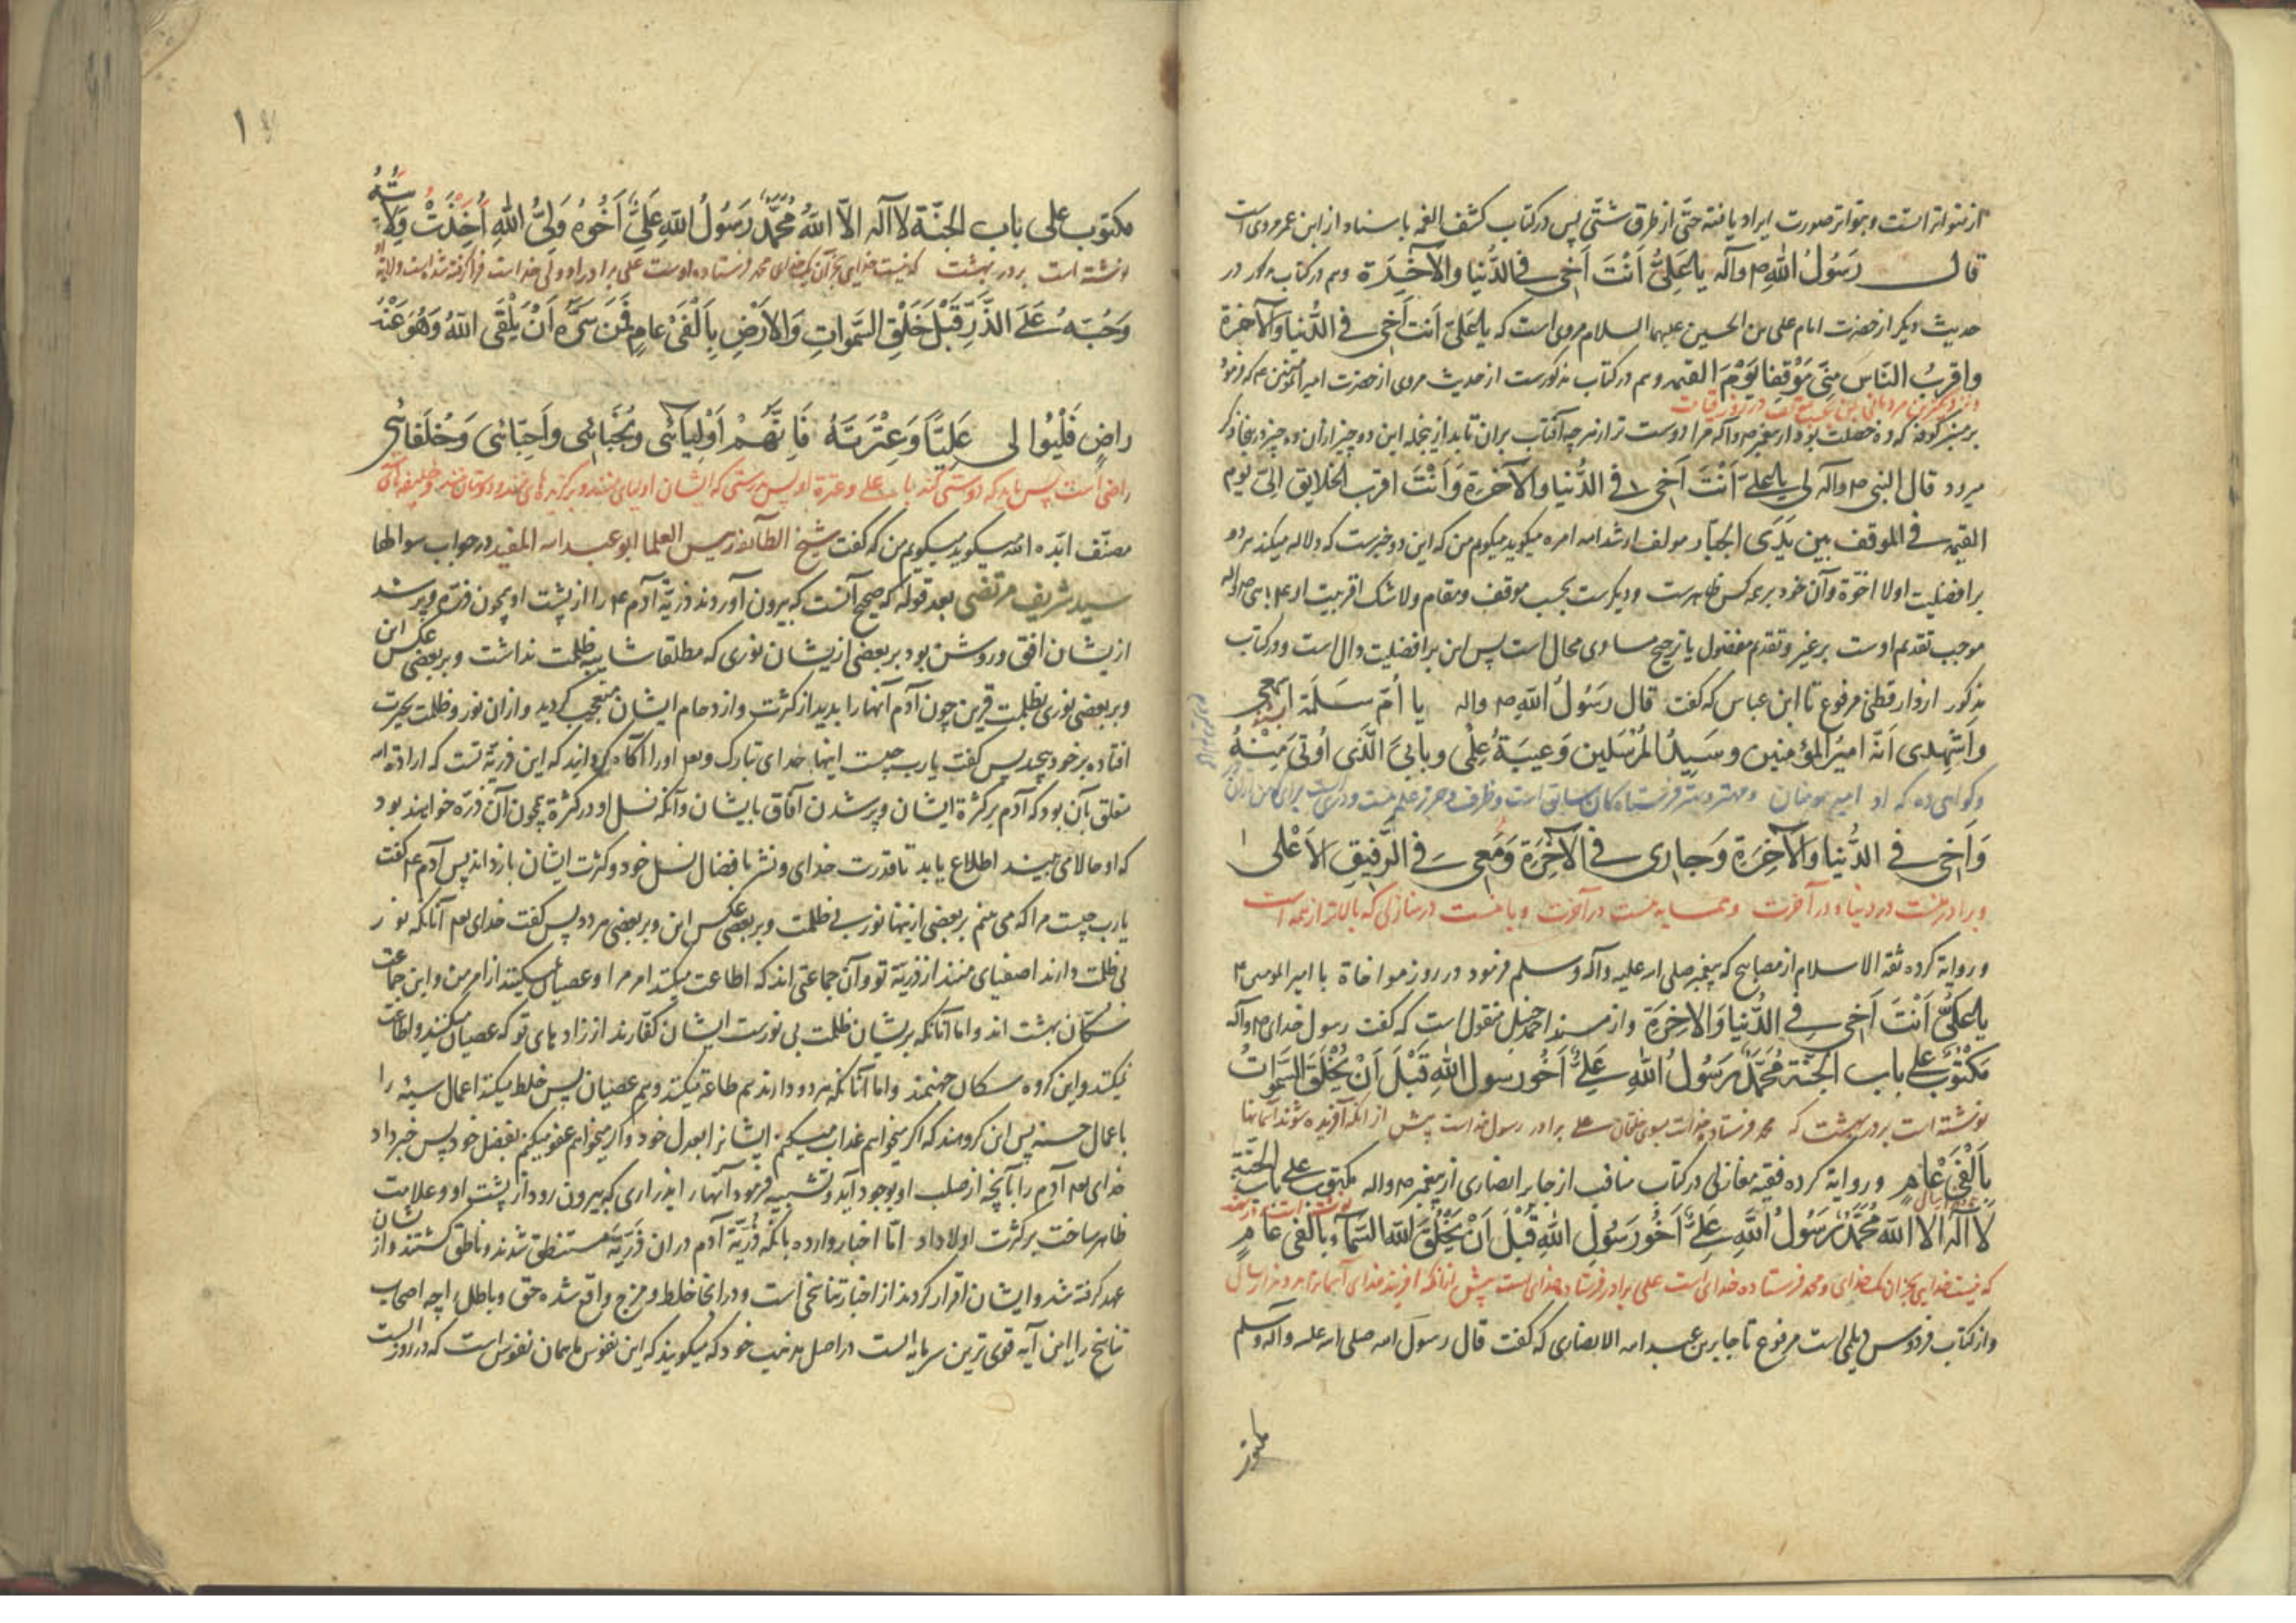 از متواتراتست و بتواتر صورت ایراد یافته حتّی از طرق شتّی پس در کتاب کشف الغمه باسناد از ابن عمر مرویست
قال رَسُولُ اللهِ ص وآله یا عَلِیُّ اَنْتَ اَخی فی الدُّنیا وَالآخِرَة و هم در کتاب مذکور در
حدیث دیگر از حضرت امام علی بن الحسین علیهما السلام مروی است که یا عَلیّ اَنتَ اَخی فی الدُّنیا وَالآخِرَة
وَاقرَبُ النّاسِ مِنّی مَوْقِفا یَوْمَ القیمه و هم در کتاب مذکورست از حدیث مروی از حضرت امیرالمؤمنین ع که فرمود
و نزدیکترین مردمانی بمن بحسب موقف در روز قیامت
بر منبر کوفه که ده خصلت بود از پیغمبر ص وآله که مرا دوست تر از هر چه آفتاب بران تابد از جمله این دو چیز از ان ده چیز در اینجا ذکر
میرود قال النبی ص وآله لی یا علیّ اَنْتَ اَخی فی الدُّنیا وَالآخِرَة وَاَنْتَ اقرب الخلایق اِلیَّ یوم
القیمه فی الموقف بین یَدَیِ الجبّار مولف ارشد الله امره میکوید میکویم من که این دو خبرست که دلاله میکند هر دو
بر افضلیت اولا اخوّة وآن خود بر همه کس ظاهرست و دیگرست بحسب موقف و مقام ولاشک اقربیت او ع بنبی ص واله
موجب تقدیم اوست بر غیر و تقدیم مفضول یا ترجیح مساوی محال است پس این بر افضلیت دال است و در کتاب
مذکور از دار قطنی مرفوع تا ابن عباس که گفت قال رَسُولُ اللهِ ص واله یا اُمّ سَلَمَة اسمعی
وَاَشْهِدی اَنّه امیرُ المؤمنین وسَیِّدُ المُرْسَلین وَعَیبَةُ عِلْمی وبابیَ الَّذی اُوتیٰ مِنْهُ
و گواهی ده که او امیر مومنان و مهتر و بهتر فرستادگان سابق است و ظرف و حرز علم منست و در
وَاَخی فی الدُّنیا وَالآخِرَة وَجاری فی الآخِرَة وَمَعی فی الرَّفیقِ الاَعْلی
و برادر منست در دنیا و در آخرت و همسایه منست در آخرت و با منست در منازلی که بالاتر از همه است
و روایة کرده ثقة الاسلام از مصابیح که پیغمبر صلی الله علیه وآله وسلم فرمود در روز مواخاة با امیر المومنین ع
یا عَلیُّ اَنْتَ اَخی فی الدُّنیا وَالآخِرَة و از مسند احمد حنبل منقول است که گفت رسول خدای ص وآله
مَکْتُوبٌ علی باب الجَنّة مُحَمَّدٌ رَسُولُ اللهِ عَلیٌّ اَخُو رسول اللهِ قَبْلَ اَنْ یُخْلَقَ السَّمواتُ
نوشته است بر در بهشت که محمد فرستاده خداست بسوی خلقان علی برادر رسول خداست پیش از آنکه آفریده شوند آسمانها
بِاَلْفَیْ عامٍ و روایة کرده فقیه مغازلی در کتاب مناقب از جابر انصاری از پیغمبر ص واله مکتوب علی باب الجنّة
لا اله الا الله مُحَمَّدٌ رَسُولُ اللهِ عَلِیٌّ اَخُو رَسُولِ اللهِ قَبْلَ اَنْ یَخْلُقَ اللهُ السَّمآءَ بالفی عامٍ
که نیست خدایی بجز ان یک خدای و محمد فرستاده خدای است علی برادر فرستاده خدای است پیش از انکه افریند خدای آسمانرا بدو هزار سال
و از کتاب فردوس دیلمی است مرفوع تا جابر بن عبد الله الانصاری که گفت قال رسول الله صلی الله علیه وآله وسلم
مکتوب علی باب الجَنّة لا آله الاّ اللهُ مُحَمَّدٌ رَسُولُ اللهِ عَلِیٌّ اَخُوهُ وَلیُّ اللهِ اُخِذَتْ وِلایَتُهُ
نوشته است بر در بهشت که نیست خدایی بجز آن یک خدای محمد فرستاده اوست علی برادر او ولی خداست فرا گرفته شده است ولایة
وَحُبّهُ عَلَی الذَّرِّ قَبْلَ خَلْقِ السَّمواتِ وَالاَرْضِ بِاَلْفَیْ عامٍ فَمَن سَرَّه اَنْ یَلْقَی اللهُ وَهُوَ عَنْهُ
راضٍ فَلْیُوالی عَلِیّاً وَعِتْرَتَهُ فَاِنَّهُمْ اَوْلِیآئی ونُجَبائی واَحِبّائی وَخُلَفائی
راضی است پس باید که دوستی کند با علی و عترة او پس بدرستی که ایشان اولیای منند و برگزیدهای منند و دوستان منند و خلیفهای
مصنّف ایّده الله میگوید میگویم من که گفت شیخ الطائفه رییس العلما ابو عبد الله المفید در جواب سوالهای
سید شریف مرتضی بعد قوله که صحیح آنست که بیرون آوردند ذریّة آدم ع را از پشت او همچون ذرّه و پر شد
از یشان افق و روشن بود بر بعضی از یشان نوری که مطلقا شایبه ظلمت نداشت و بر بعضی عکس این
و بر بعضی نوری بظلمت قرین چون آدم آنها را بدید از کثرت و ازدحام ایشان متعجب گردید و از ان نور و ظلمت بحیرت
افتاده بر خود پیچید پس گفت یا رب چیست اینها خدای تبارک و تعالی او را آگاه گردانید که این ذریّة تست که ارادة الله
متعلق بآن بود که آدم بر کثرة ایشان و پر شدن آفاق بایشان و آنکه نسل او در کثرة همچون آن ذرّه خواهند بود
که او حالا می بیند اطلاع یابد تا قدرت خدای و نشر با فضال نسل خود و کثرت ایشان باز داند پس آدم ع گفت
یا رب چیست مرا که می بینم بر بعضی از ینها نور بی ظلمت و بر بعضی عکس این و بر بعضی هر دو پس گفت خدای تعالی آنانکه نور
بی ظلمت دارند اصفیای منند از ذریّة تو و آن جماعتی اند که اطاعت میکنند امر مرا و عصیان نمیکنند از امر من و این جماعت
سکّان بهشت اند و اما آنانکه بریشان ظلمت بی نورست ایشان کفّارند از زادهای تو که عصیان میکنند و اطاعت
نمیکنند و این گروه سکان جهنمند و اما آنانکه هر دو دارند هم طاعة میکنند و هم عصیان پس خلط میکنند اعمال سیئه را
باعمال حسنه پس این گروهند که اگر میخواهم عذاب میکنم ایشانرا بعدل خود و اگر میخواهم عفو میکنم بفضل خود پس خبر داد
خدای تعالی آدم را بآنچه از صلب او بوجود آید و تشبیه فرمود آنها را بذراری که بیرون رود از پشت او و علامت
ظاهر ساخت بر کثرت اولاد او امّا اخبار وارده بآنکه ذُرّیّة آدم در ان ذَرّیّة مستنطق شدند و ناطق گشتند و از یشان
عهد گرفته شد و ایشان اقرار کردند از اخبار تناسخی است و در انجا خلط و مزج واقع شده حق و باطل چه اصحاب
تناسخ را این آیه قوی ترین سرمایه است در اصل مذهب خود که میگویند که این نفوس ما همان نفوس است که در روز الست